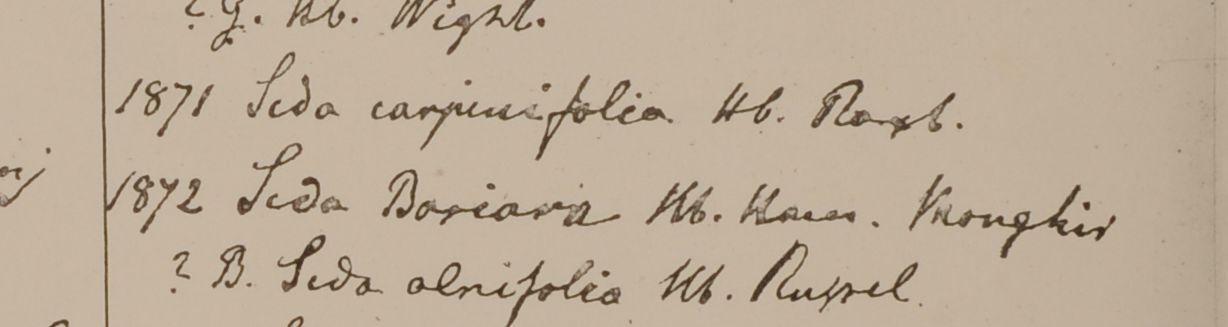 ? G. Hb. Wight.
1871 Sida carpinifolia Hb. Roxb.
1872 Sida Bariara Hb. Ham. Monghir
? B. Sida alnifolia Hb. Russel